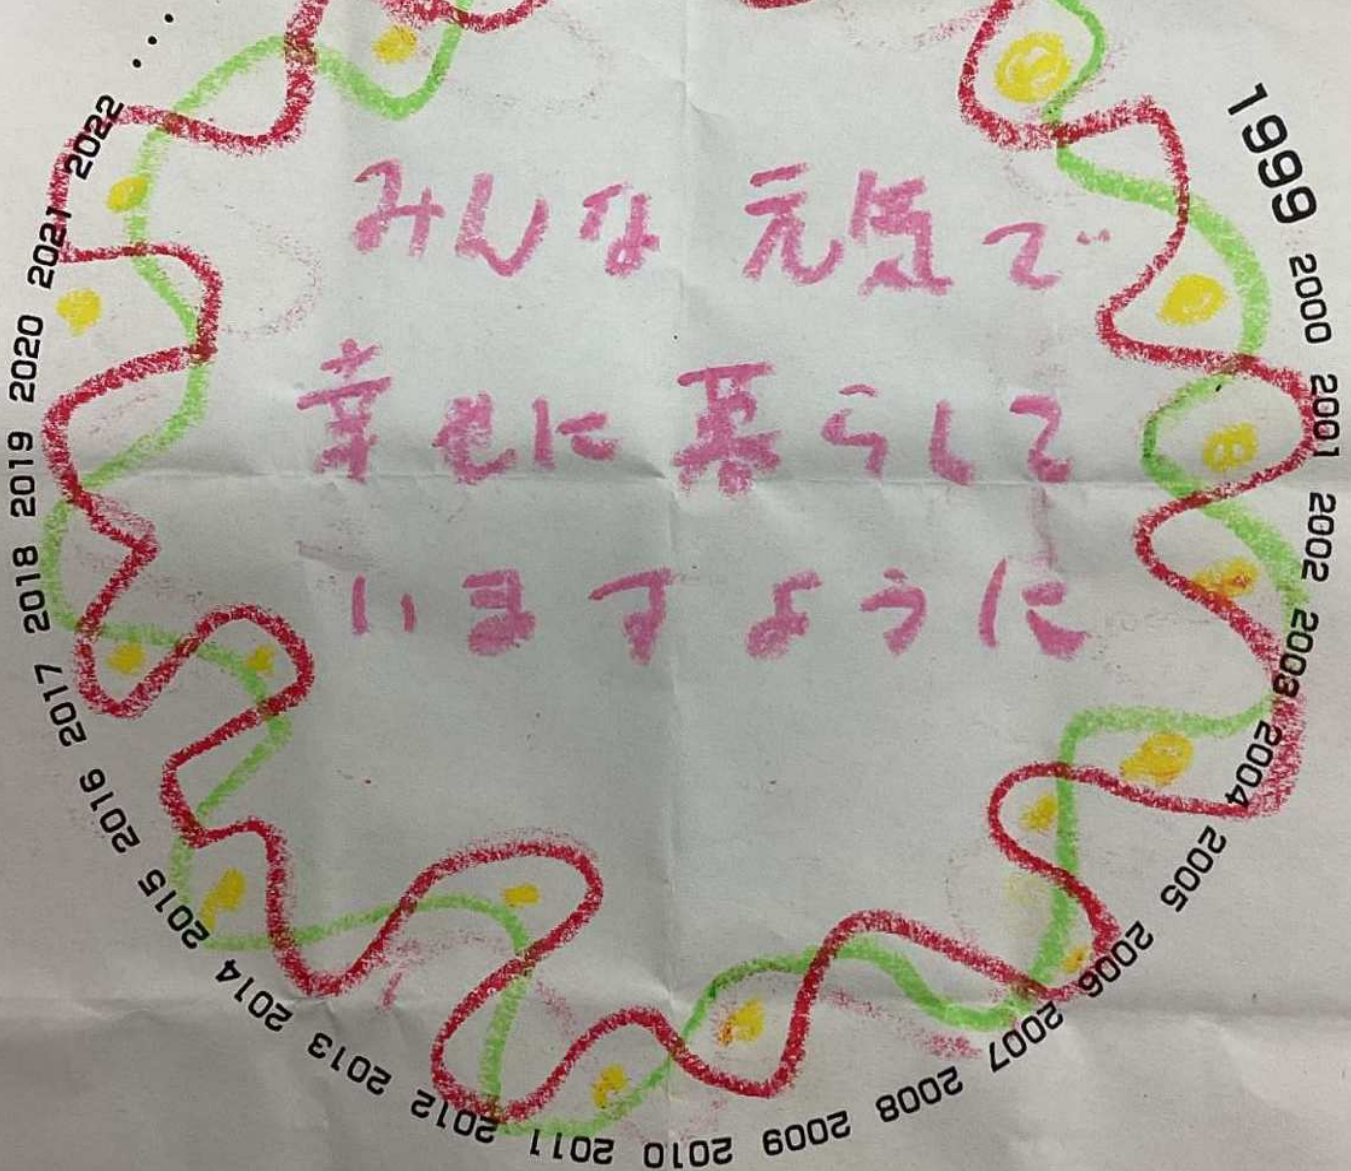 みんな 元気で
幸せに 暮らして
いますように
1999
2000
2001
2002
2003
2004
2005
2006
2007
2008
2009
2010
2011
2012
2013
2014
2015
2016
2017
2018
2019
2020
2021
2022
...